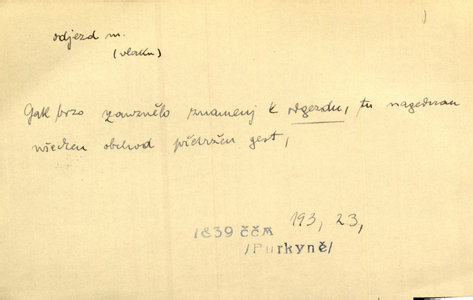 odjezd m.
(vlaku)
Gak brzo zawznělo znamenj k odgezdu, tu nagednau
wšecken obchod přetržen gest,
193, 23,
1839 ČČM
/Purkyně/